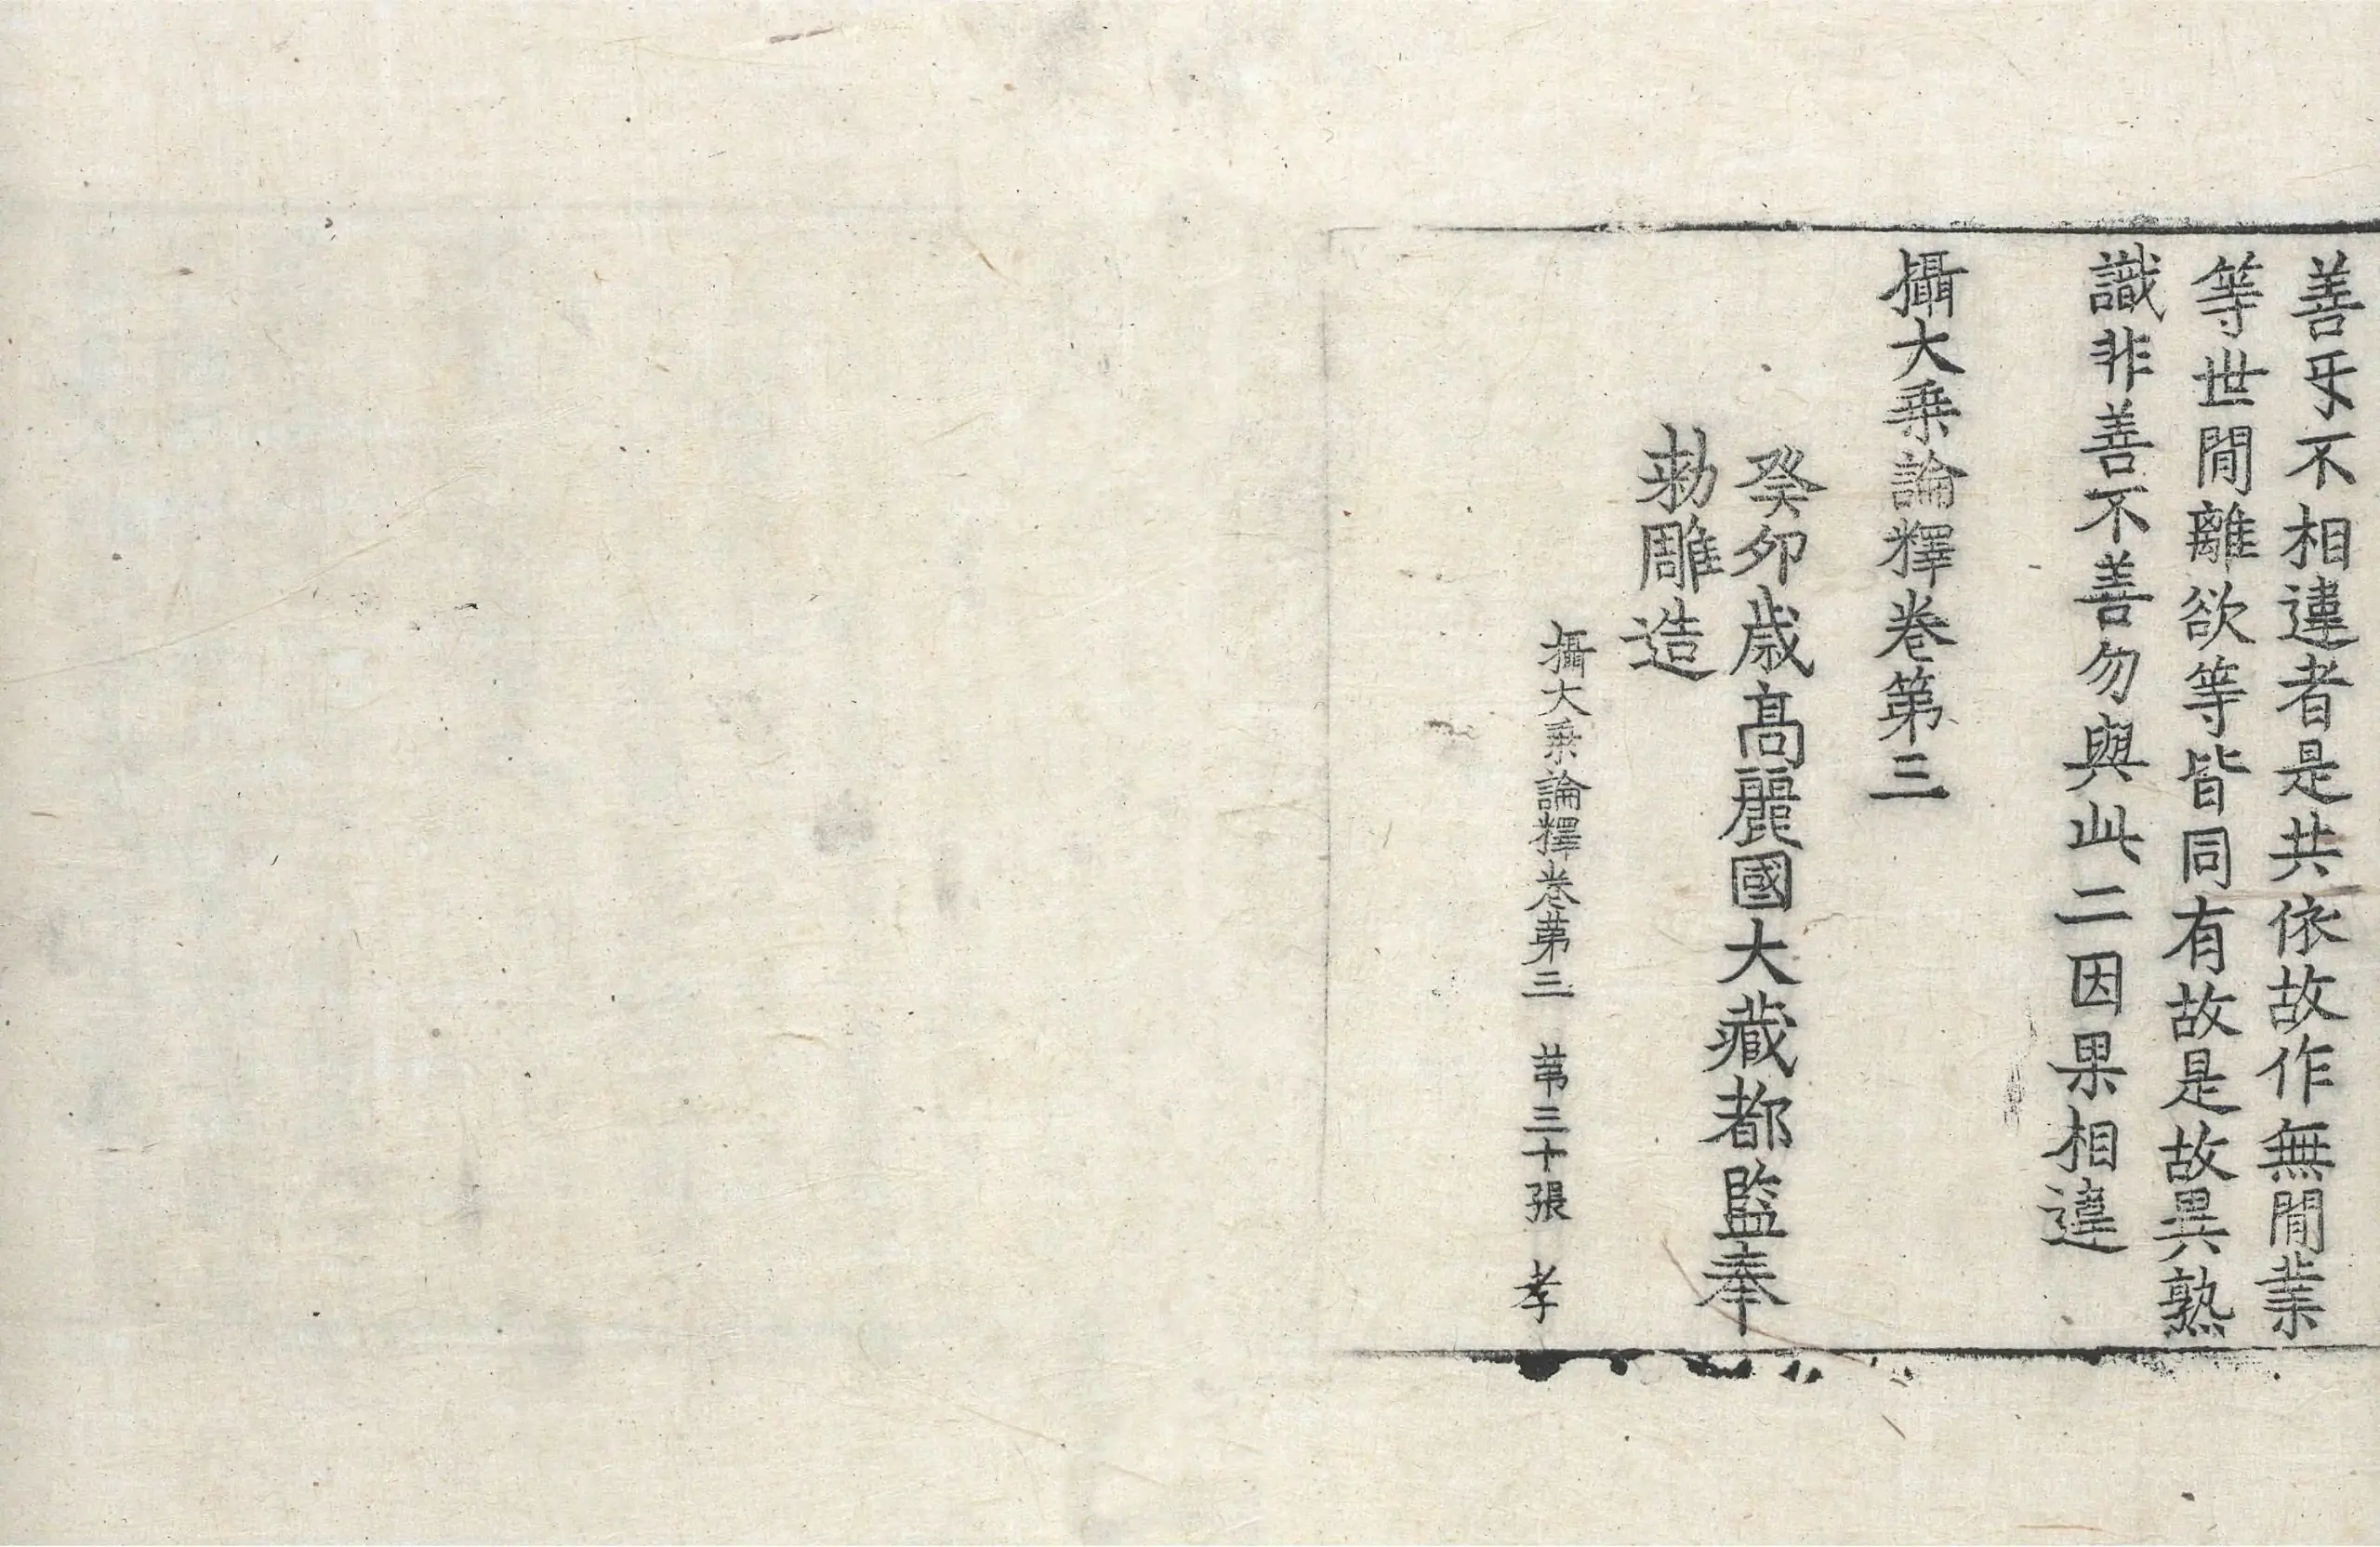 善㸦不相違者是共依故作無閒業
等世閒離欲等皆同有故是故異熟
識非善不善勿與此二因果相違
攝大乗論釋卷第三
癸卯歳髙麗國大藏都監奉
勅雕造
攝大乗論釋卷苐三 苐三十張 孝